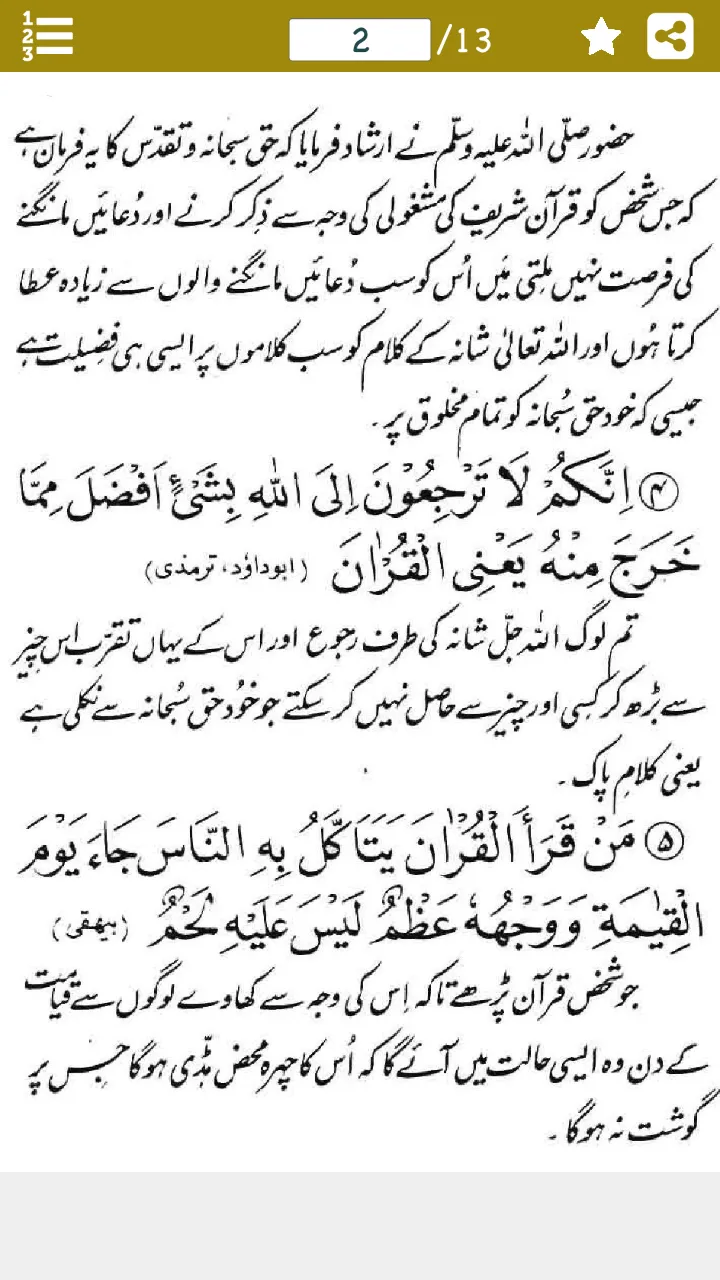 1
2
3
2 /13
حضور صلّی اللہ علیہ وسلّم نے ارشاد فرمایا کہ حق سبحانہ و تقدّس کا یہ فرمان ہے
کہ جس شخص کو قرآن شریف کی مشغولی کی وجہ سے ذِکر کرنے اور دُعائیں مانگنے
کی فرصت نہیں مِلتی میں اُس کو سب دُعائیں مانگنے والوں سے زیادہ عطا
کرتا ہُوں اور اللہ تعالیٰ شانہ کے کلام کو سب کلاموں پر ایسی ہی فضِیلت ہے
جیسی کہ خود حق سُبحانہ کو تمام مخلوق پر۔
۴ اِنَّكُمْ لَا تَرْجِعُوْنَ اِلَى اللهِ بِشَىْءٍ اَفْضَلَ مِمَّا
خَرَجَ مِنْهُ يَعْنِى الْقُرْاٰنَ (ابوداؤد، ترمذی)
تم لوگ اللہ جلّ شانہ کی طرف رجوع اور اس کے یہاں تقرّب اس چیز
سے بڑھ کر کسی اور چیز سے حاصل نہیں کر سکتے جو خُود حق سُبحانہ سے نکلی ہے
یعنی کلامِ پاک۔
۵ مَنْ قَرَأَ الْقُرْاٰنَ يَتَاَكَّلُ بِهِ النَّاسَ جَاءَ يَوْمَ
الْقِيٰمَةِ وَوَجْهُهٗ عَظْمٌ لَيْسَ عَلَيْهِ لَحْمٌ (بیہقی)
جو شخص قرآن پڑھے تاکہ اِس کی وجہ سے کھاوے لوگوں سے قیامت
کے دن وہ ایسی حالت میں آئے گا کہ اُس کا چہرہ محض ہڈّی ہوگا جِس پر
گوشت نہ ہوگا۔